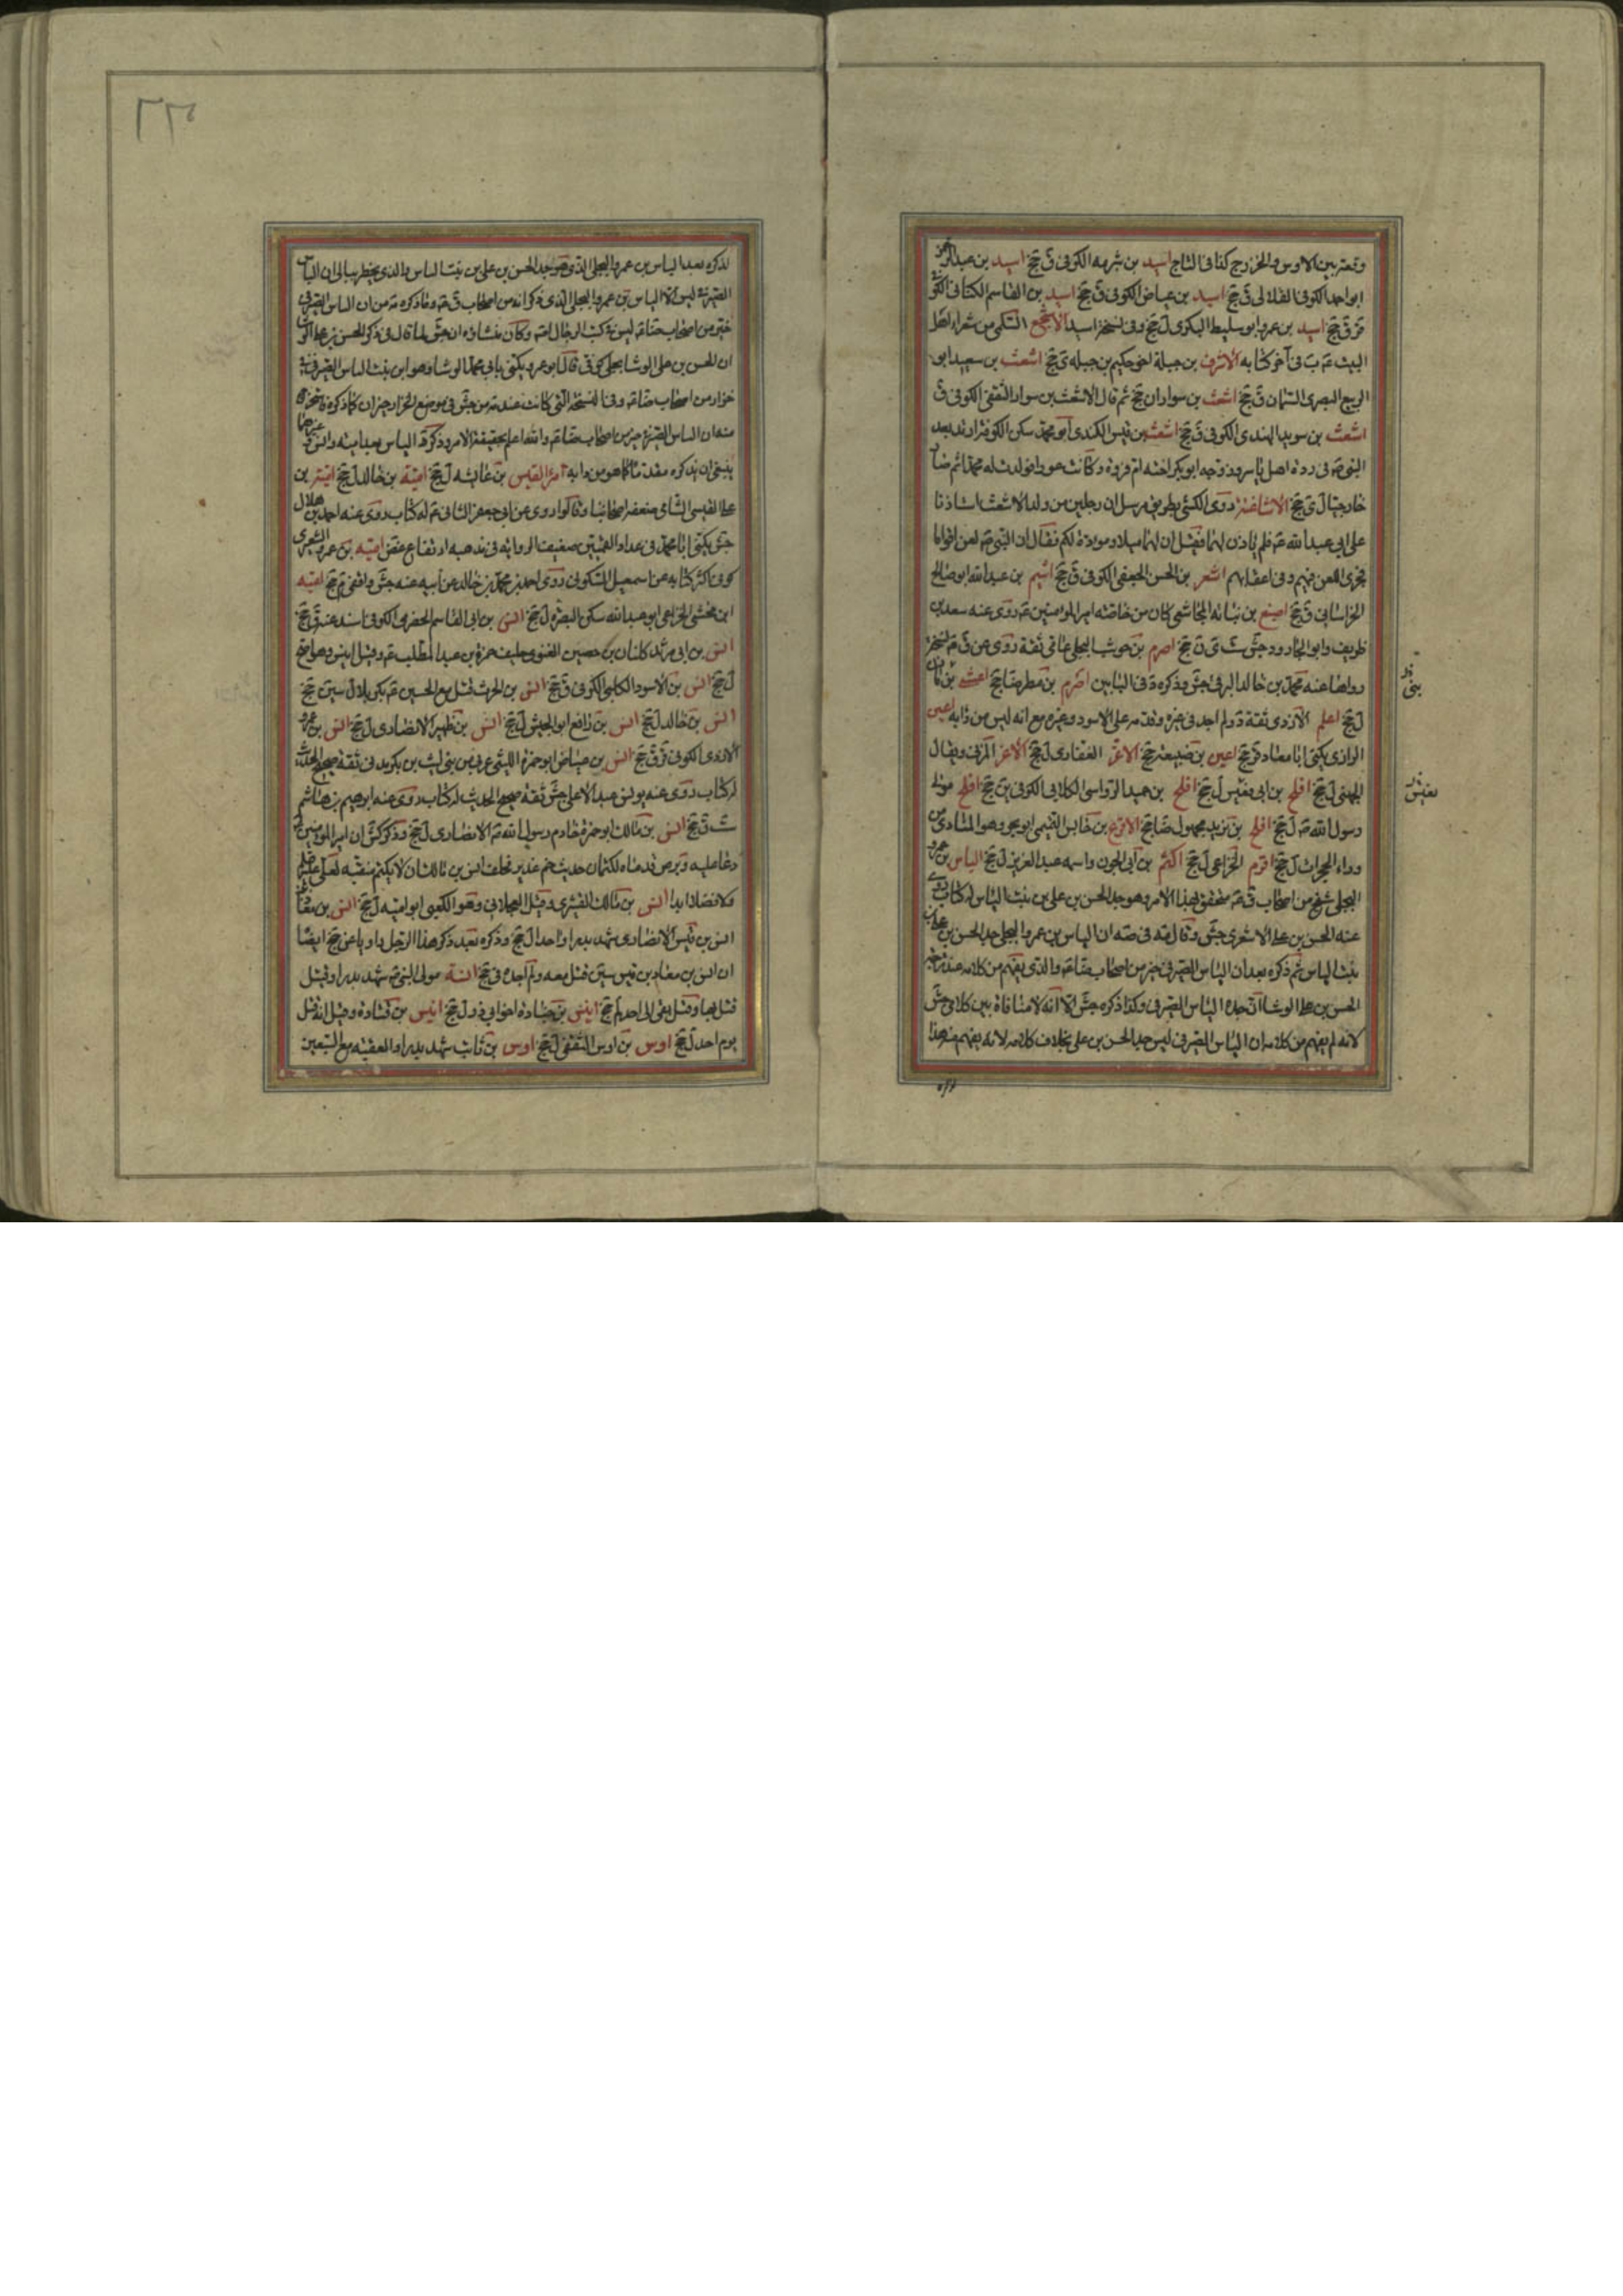 وقعتر بين الاوس والخزرج كذا في التاج اسيد بن شبرمه الكوفي ق جخ اسيد بن عبدالرحمن
ابو احمد الكوفي ق جخ اسيد بن عياض الكوفي ق جخ اسيد بن القاسم الكناني الكو
ق جخ اسيد بن عمرو ابو سليط البكري ل جخ وفي نسخة اسيد الاشجع السلمي من شعراء اهل
البيت في آخر كتابه الاشرف بن جبلة اخو حكيم بن جبله ي جخ اشعث بن سعيد ابو
الربيع البصري السمان ق جخ اشعث بن سوار ان جخ ثم قال الاشعث بن سوار الثقفي الكوفي ق
اشعث بن سويد النهدي الكوفي ق جخ اشعث بن قيس الكندي ابو محمد سكن الكوفة ارتد بعد
النبي في ردة اهل ياسر وزوجه ابو بكر اخته ام فروة وكانت عوراء فولدت له محمدا ثم صار
خارجيا ل ي جخ الاشاعثة روى الكشي بطريق مرسل ان رجلين من ولد الاشعث استاذنا
على ابي عبد الله فلم ياذن لهما فقيل ان لهما ميلا ومودة لكم فقال ان النبي لعن اقواما
فجرى اللعن فيهم وفي اعقابهم اشعر بن الحسن الجعفي الكوفي ق جخ اشيم بن عبد الله ابو صالح
الخراساني ق جخ اصبغ بن نباته المجاشعي كان من خاصته امير المؤمنين روى عنه سعد بن
ظريف وابو الجارود جش ست ي ن جخ اصرم بن حوشب البجلي عامي ثقة روى عن ق نسخة
رواها عنه محمد بن خالد البرقي جش وذكره د في البابين اصرم بن مطر جخ اعشى بن
ل جخ اعلم الازدي ثقة د ولم اجد في غيره وعلى الاسود وغيره مع انه ليس من دابه اعين
الرازي يكنى ابا معاذ قر جخ اعين بن ضبيعة جخ الاغر الغفاري ل جخ الاغر المزني ويقال
الجهني ل جخ افلح بن ابي قعيس ل جخ افلح بن حميد الرواسي الكلابي الكوفي ين جخ افلح مولى
رسول الله ل جخ افلح بن يزيد مجهول جخ الاقرع بن حابس التميمي وهو المنادي من
وراء الحجرات ل جخ اقرم الخزاعي ل جخ اكثم بن ابي الجون واسمه عبد العزيز ل جخ الياس بن عمرو
البجلي شيخ من اصحاب ق متحقق بهذا الامر وهو جد الحسن بن علي بن بنت الياس له كتاب روى
عنه الحسن بن علي الاشعري جش وقال في صه ان الياس بن عمرو البجلي جد الحسن بن علي بن
بنت الياس ثم ذكره بعد ان الياس الصيرفي خير من اصحاب ضا والذي يفهم من كلامه عند ترجمة
الحسن بن علي الوشا ان جده الياس الصيرفي وكذا ذكره جش الا انه لا منافاة بين كلامي جش
لانه لم يفهم من كلامه ان الياس الصيرفي ليس جد الحسن بن علي بخلاف كلامه لانه يفهم منه هذا
بني
قعيس
لذكره بعد الياس بن عمرو البجلي الذي هو جد الحسن بن علي بن بنت الياس والذي يخطر ببالي ان الياس
الصيرفي ليس الا الياس بن عمرو البجلي الذي ذكر انه من اصحاب ق وما ذكره من ان الياس الصيرفي
خير من اصحاب ضا ليس في كتب الرجال وكان منشاؤه ان جش لما قال في ذكر الحسن بن علي الو
ان الحسن بن علي الوشا بجلي كوفي قال ابو عمرو يكنى بابي محمد الوشا وهو ابن بنت الياس الصيرفي
خزاز من اصحاب ضا وفي النسخة التي كانت عنده من جش في موضع الخزاز خيران كما ذكره
منه ان الياس الصيرفي خير من اصحاب ضا والله اعلم بحقيقة الامر وذكر الياس
ينبغي ان يذكره مقدما كما هو من دابه امرؤ القيس بن عابس ل جخ امية بن خالد ل جخ امية بن
علي القيسي الشامي ضعفه اصحابنا وقالوا روى عن ابي جعفر الثاني له كتاب روى عنه احمد بن هلال
جش يكنى ابا محمد في عداد القميين ضعيف الرواية في مذهبه ارتفاع غض امية بن عمرو الشعيري
كوفي اكثر كتابه عن اسمعيل السكوني روى احمد بن محمد بن خالد عن ابيه عنه جش واقفي م جخ امية
ابن مخشي الخزاعي ابو عبد الله سكن البصرة ل جخ انس بن ابي القاسم الحضرمي الكوفي اسند عنه ق جخ
انس بن ابي مرثد كناز بن حصين الغنوي حليف حمزة بن عبد المطلب وقيل انيس وهو اصح
ل جخ انس بن الاسود الكلبي الكوفي ق جخ انس بن الحرث قتل مع الحسين بكربلا ل سين جخ
انس بن خالد ل جخ انس بن رافع ابو الجيش ل جخ انس بن ظهير الانصاري ل جخ انس بن عمرو
الازدي الكوفي قر ق جخ انس بن عياض ابو حمزة الليثي عربي من بني ليث بن بكر مدني ثقة صحيح الحديث
له كتاب روى عنه يونس عبد الاعلى جش ثقة صحيح الحديث له كتاب روى عنه ابراهيم بن هاشم
ست ق جخ انس بن مالك ابو حمزة خادم رسول الله الانصاري ل جخ وذكر كش ان امير المؤمنين
دعا عليه وبرص قدماه لكتمان حديث خم غدير فحلف انس بن مالك ان لا يكتم منقبة لعلي
ولا فضلا ابدا انس بن مالك القشيري وقيل العجلاني وهو الكعبي ابو امية ل جخ انس بن معاذ
انس بن قيس الانصاري شهد بدرا واحدا ل جخ وذكره بعد ذكر هذا الرجل راويا عن جخ ايضا
ان انس بن معاذ بن قيس سين قتل معه ولم اجده في جخ انسة مولى النبي شهد بدرا وقيل
قتل بها وقيل بقي الى احد ل جخ انيس بن جنادة اخو ابي ذر ل جخ انيس بن قتادة وقيل انه قتل
يوم احد ل جخ اوس بن اوس الثقفي ل جخ اوس بن ثابت شهد بدرا والعقبة مع السبعين